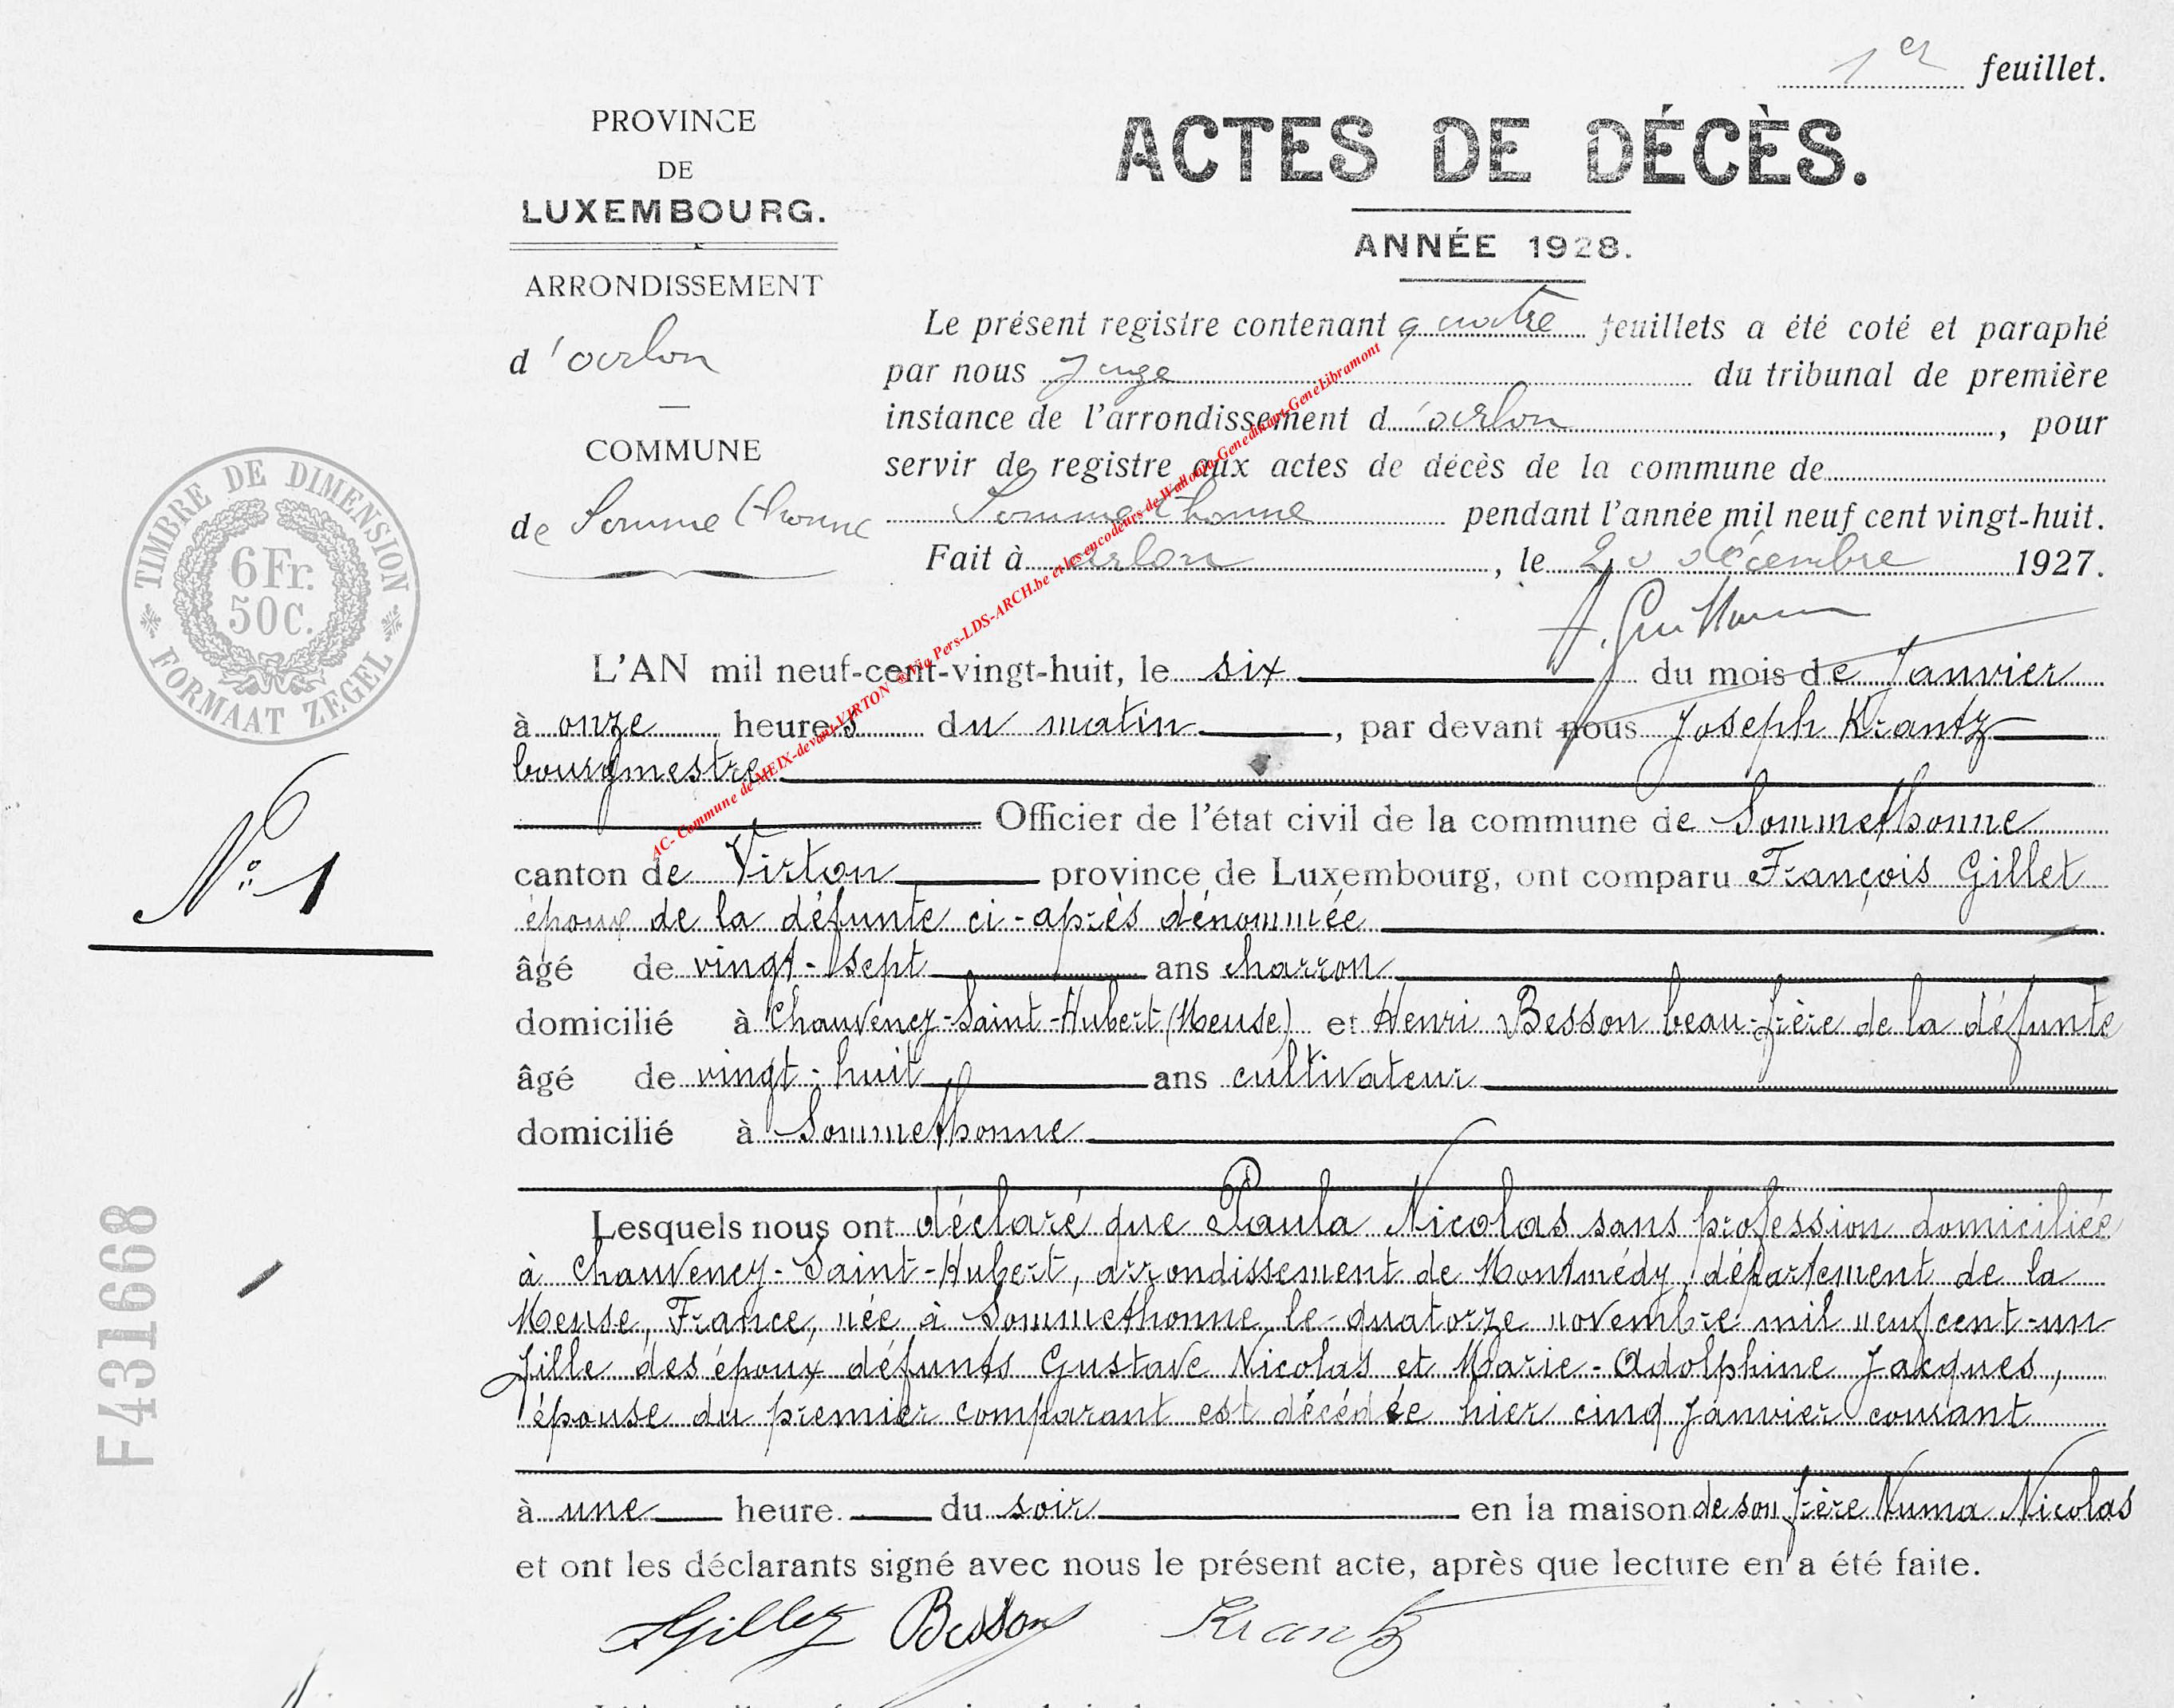 1er feuillet.
PROVINCE
DE
LUXEMBOURG.
ARRONDISSEMENT
d'arlon
COMMUNE
de Sommethonne
ACTES DE DÉCÈS.
ANNÉE 1928.
Le présent registre contenant quatre feuillets a été coté et paraphé
par nous Juge du tribunal de première
instance de l'arrondissement d'arlon, pour
servir de registre aux actes de décès de la commune de
Sommethonne pendant l'année mil neuf cent vingt-huit.
Fait à arlon, le 20 décembre 1927.
TIMBRE DE DIMENSION
6 Fr.
50 C.
FORMAAT ZEGEL
AC- Commune de MEIX-devant-VIRTON ® Via Pers-LDS-ARCH.be et les encodeurs de Wallonia-Genedinant-GeneLibramont
L'AN mil neuf-cent-vingt-huit, le six du mois de Janvier
à onze heures du matin, par devant nous Joseph Krantz
bourgmestre
Officier de l'état civil de la commune de Sommethonne
N° 1
canton de Virton province de Luxembourg, ont comparu François Gillet
époux de la défunte ci-après dénommée
âgé de vingt-sept ans charron
domicilié à Chauvency-Saint-Hubert (Meuse) et Henri Besson beau-frère de la défunte
âgé de vingt-huit ans cultivateur
domicilié à Sommethonne
Lesquels nous ont déclaré que Paula Nicolas sans profession domiciliée
à Chauvency-Saint-Hubert, arrondissement de Montmédy, département de la
Meuse, France, née à Sommethonne le quatorze novembre mil neuf cent-un
fille des époux défunts Gustave Nicolas et Marie-Adolphine Jacques,
épouse du premier comparant est décédée hier cinq Janvier courant
F431668
à une heure du soir en la maison de son frère Numa Nicolas
et ont les déclarants signé avec nous le présent acte, après que lecture en a été faite.
Gillet Besson Krantz